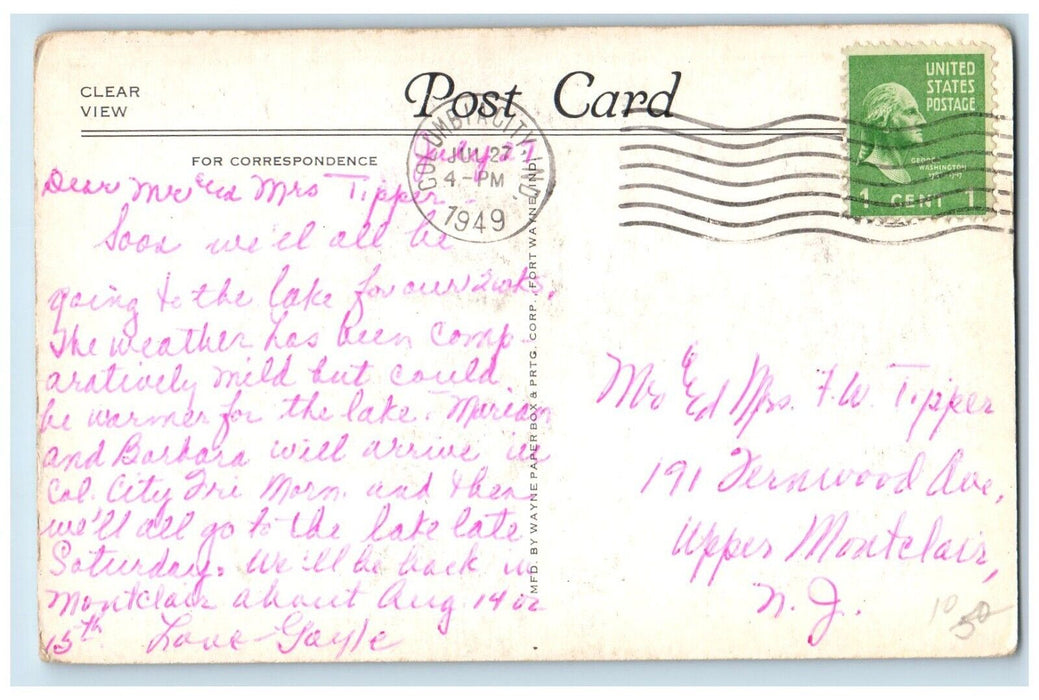 CLEAR
VIEW
Post Card
FOR CORRESPONDENCE
UNITED
STATES
POSTAGE
GEORGE
WASHINGTON
1 CENT 1
COLUMBIA CITY, IND.
JUL 27
4-PM
1949
July 27
Dear Mr & Mrs Tipper -
Soon we'll all be
going to the lake for our 2 wks.
The weather has been comp-
aratively mild but could
be warmer for the lake. Mariam
and Barbara will arrive in
Col. City Fri Morn. and then
we'll all go to the lake late
Saturday. We'll be back in
Montclair about Aug 14 or
15th Love Gayle
MFD. BY WAYNE PAPER BOX & PRTG. CORP., FORT WAYNE, IND.
Mr & Mrs. F. W. Tipper
191 Fernwood Ave,
Upper Montclair,
N. J.
10
50